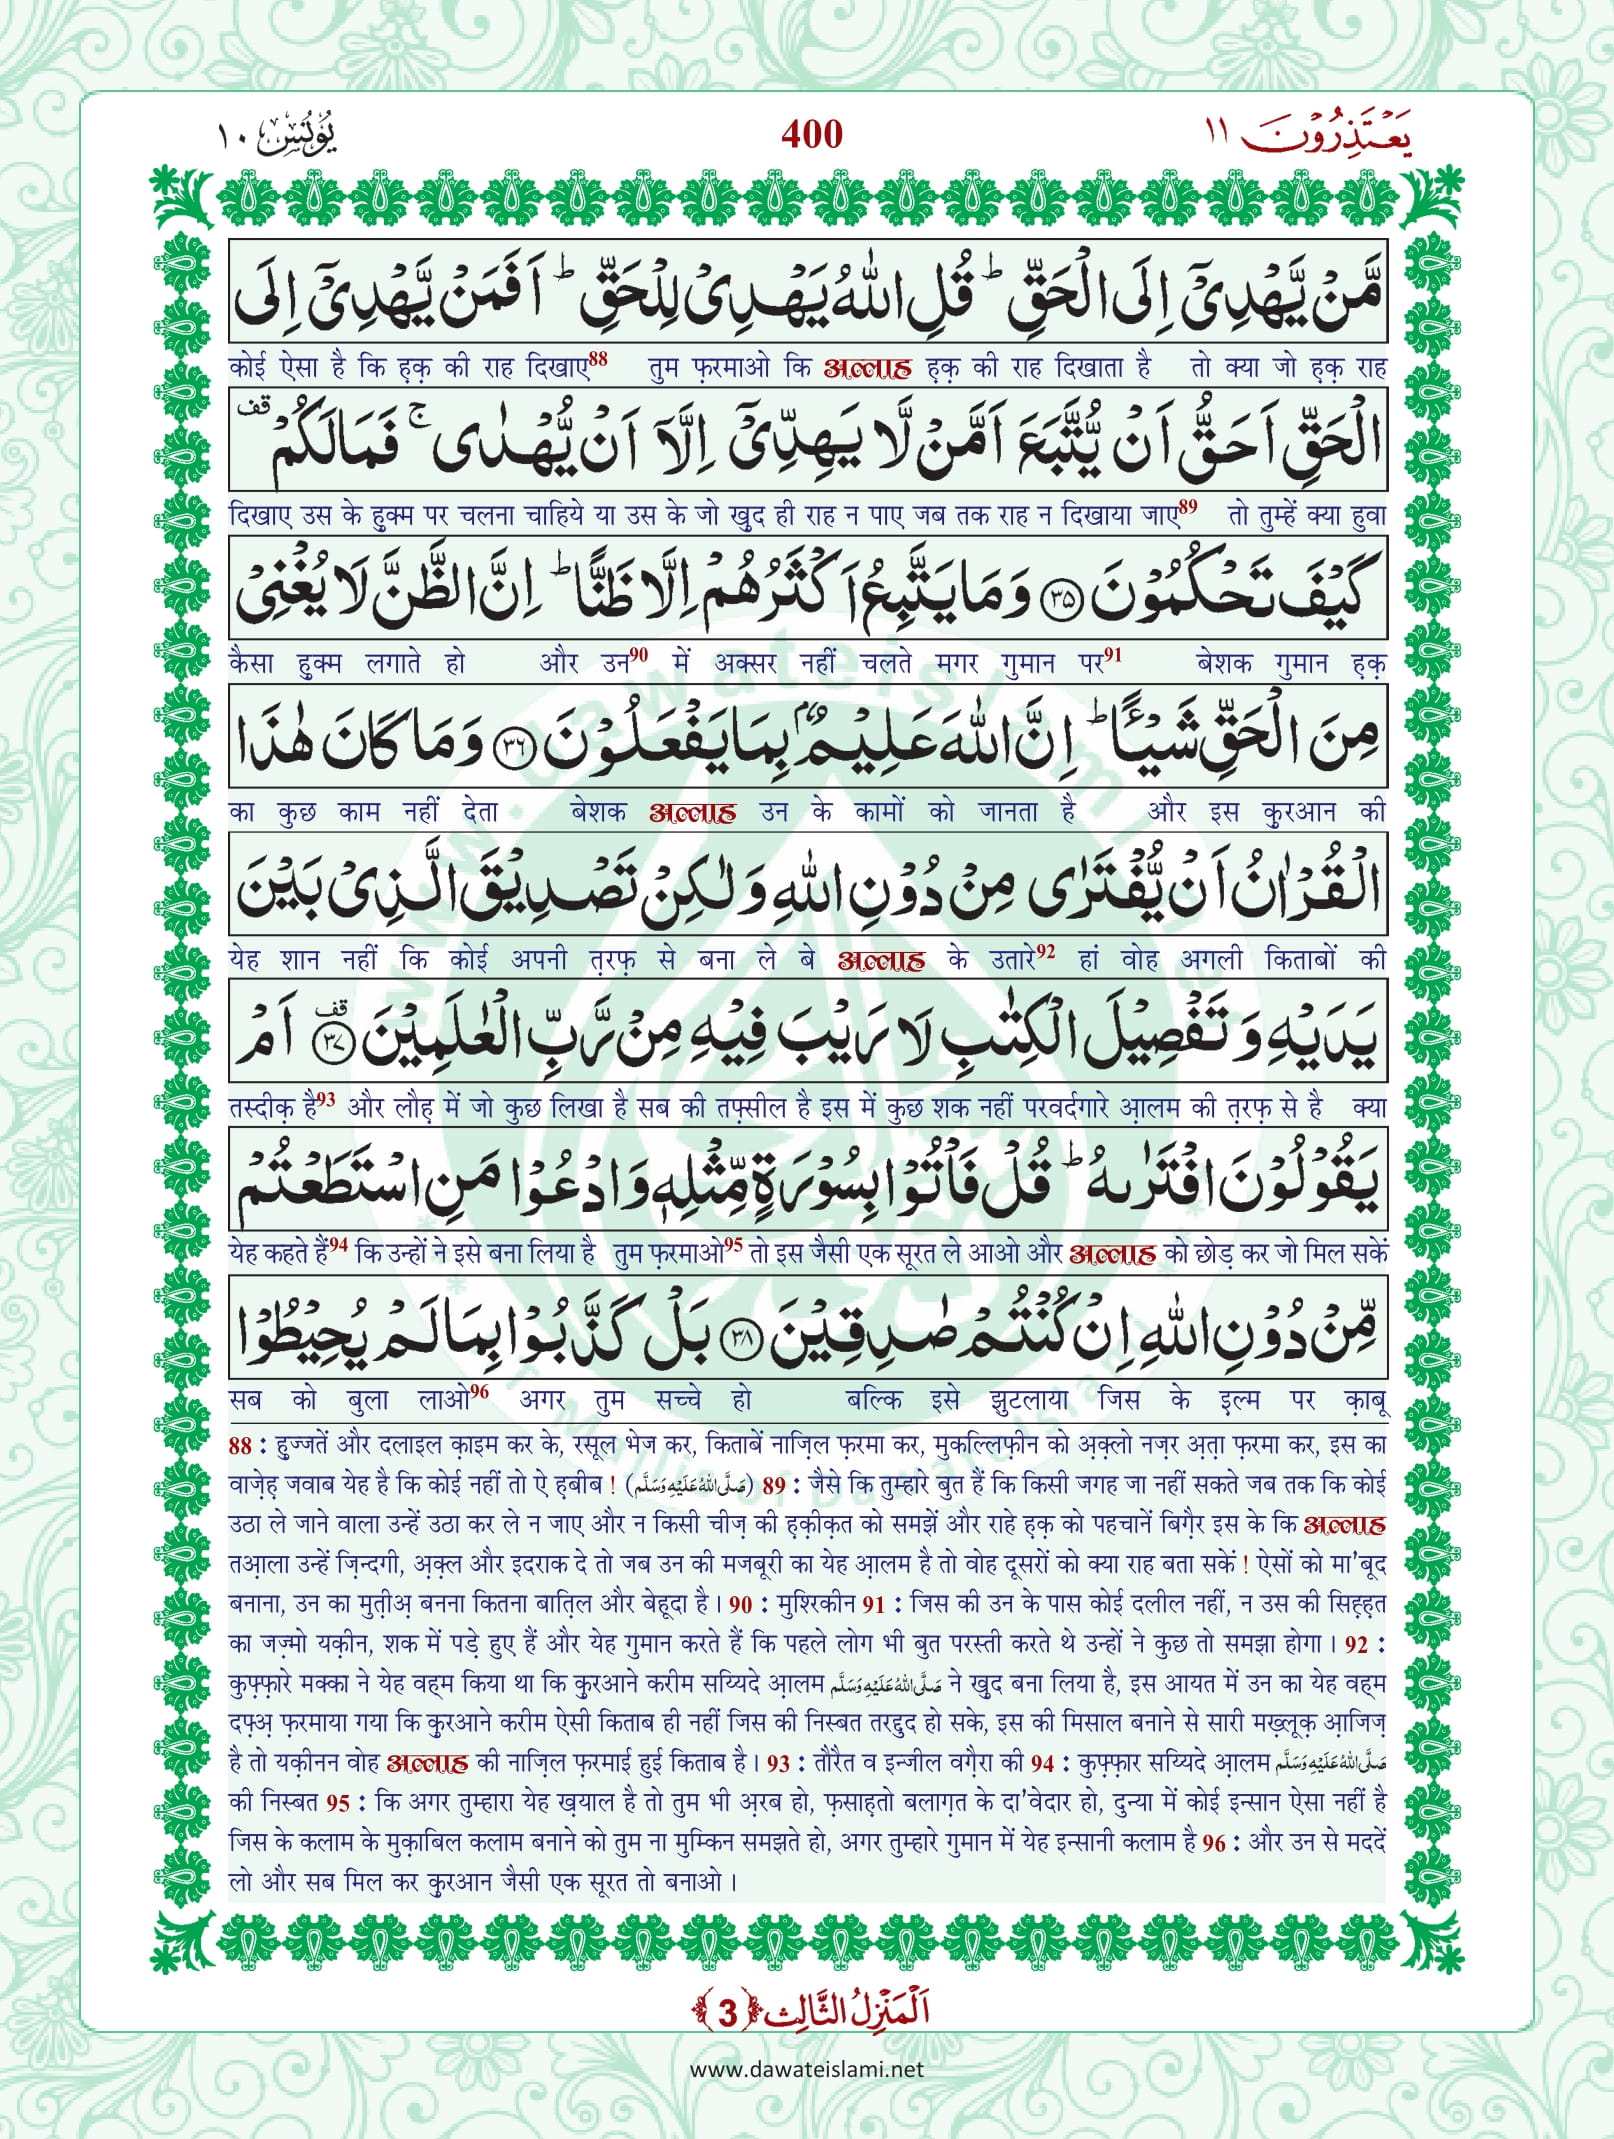 یَعْتَذِرُوْنَ ۱۱
400
یُوْنُس ۱۰
مَّنْ یَّهْدِیْۤ اِلَى الْحَقِّ ؕ قُلِ اللّٰهُ یَهْدِیْ لِلْحَقِّ ؕ اَفَمَنْ یَّهْدِیْۤ اِلَى
कोई ऐसा है कि ह़क़ की राह दिखाए88 तुम फ़रमाओ कि अल्लाह ह़क़ की राह दिखाता है तो क्या जो ह़क़ राह
الْحَقِّ اَحَقُّ اَنْ یُّتَّبَعَ اَمَّنْ لَّا یَهِدِّیْۤ اِلَّاۤ اَنْ یُّهْدٰى ۚ فَمَا لَكُمْ ۫
दिखाए उस के हुक्म पर चलना चाहिये या उस के जो खुद ही राह न पाए जब तक राह न दिखाया जाए89 तो तुम्हें क्या हुवा
كَیْفَ تَحْكُمُوْنَ ۳۵ وَ مَا یَتَّبِعُ اَكْثَرُهُمْ اِلَّا ظَنًّا ؕ اِنَّ الظَّنَّ لَا یُغْنِیْ
कैसा हुक्म लगाते हो और उन90 में अक्सर नहीं चलते मगर गुमान पर91 बेशक गुमान ह़क़
مِنَ الْحَقِّ شَیْـًٔا ؕ اِنَّ اللّٰهَ عَلِیْمٌۢ بِمَا یَفْعَلُوْنَ ۳۶ وَ مَا كَانَ هٰذَا
का कुछ काम नहीं देता बेशक अल्लाह उन के कामों को जानता है और इस कुरआन की
الْقُرْاٰنُ اَنْ یُّفْتَرٰى مِنْ دُوْنِ اللّٰهِ وَ لٰكِنْ تَصْدِیْقَ الَّذِیْ بَیْنَ
येह शान नहीं कि कोई अपनी त़रफ़ से बना ले बे अल्लाह के उतारे92 हां वोह अगली किताबों की
یَدَیْهِ وَ تَفْصِیْلَ الْكِتٰبِ لَا رَیْبَ فِیْهِ مِنْ رَّبِّ الْعٰلَمِیْنَ ۳۷ ۫ اَمْ
तस्दीक़ है93 और लौह़ में जो कुछ लिखा है सब की तफ़्सील है इस में कुछ शक नहीं परवर्दगारे आ़लम की त़रफ़ से है क्या
یَقُوْلُوْنَ افْتَرٰىهُ ؕ قُلْ فَاْتُوْا بِسُوْرَةٍ مِّثْلِهٖ وَ ادْعُوْا مَنِ اسْتَطَعْتُمْ
येह कहते हैं94 कि उन्हों ने इसे बना लिया है तुम फ़रमाओ95 तो इस जैसी एक सूरत ले आओ और अल्लाह को छोड़ कर जो मिल सकें
مِّنْ دُوْنِ اللّٰهِ اِنْ كُنْتُمْ صٰدِقِیْنَ ۳۸ بَلْ كَذَّبُوْا بِمَا لَمْ یُحِیْطُوْا
सब को बुला लाओ96 अगर तुम सच्चे हो बल्कि इसे झुटलाया जिस के इल्म पर क़ाबू
88 : हुज्जतें और दलाइल क़ाइम कर के, रसूल भेज कर, किताबें नाज़िल फ़रमा कर, मुकल्लिफ़ीन को अ़क़्लो नज़र अ़त़ा फ़रमा कर, इस का
वाज़ेह़ जवाब येह है कि कोई नहीं तो ऐ ह़बीब ! (صَلَّى اللهُ عَلَيْهِ وَسَلَّم) 89 : जैसे कि तुम्हारे बुत हैं कि किसी जगह जा नहीं सकते जब तक कि कोई
उठा ले जाने वाला उन्हें उठा कर ले न जाए और न किसी चीज़ की ह़क़ीक़त को समझें और राहे ह़क़ को पहचानें बिग़ैर इस के कि अल्लाह
तआ़ला उन्हें ज़िन्दगी, अ़क़्ल और इदराक दे तो जब उन की मजबूरी का येह आ़लम है तो वोह दूसरों को क्या राह बता सकें ! ऐसों को मा'बूद
बनाना, उन का मुत़ीअ़ बनना कितना बात़िल और बेहूदा है । 90 : मुश्रिकीन 91 : जिस की उन के पास कोई दलील नहीं, न उस की सिह़्ह़त
का जज़्मो यक़ीन, शक में पड़े हुए हैं और येह गुमान करते हैं कि पहले लोग भी बुत परस्ती करते थे उन्हों ने कुछ तो समझा होगा । 92 :
कुफ़्फ़ारे मक्का ने येह वह्म किया था कि क़ुरआने करीम सय्यिदे आ़लम صَلَّى اللهُ عَلَيْهِ وَسَلَّم ने खुद बना लिया है, इस आयत में उन का येह वह्म
दफ़्अ़ फ़रमाया गया कि क़ुरआने करीम ऐसी किताब ही नहीं जिस की निस्बत तरद्दुद हो सके, इस की मिसाल बनाने से सारी मख़्लूक़ आ़जिज़
है तो यक़ीनन वोह अल्लाह की नाज़िल फ़रमाई हुई किताब है । 93 : तौरैत व इन्जील वग़ैरा की 94 : कुफ़्फ़ार सय्यिदे आ़लम صَلَّى اللهُ عَلَيْهِ وَسَلَّم
की निस्बत 95 : कि अगर तुम्हारा येह ख़याल है तो तुम भी अ़रब हो, फ़साह़तो बलाग़त के दा'वेदार हो, दुन्या में कोई इन्सान ऐसा नहीं है
जिस के कलाम के मुक़ाबिल कलाम बनाने को तुम ना मुम्किन समझते हो, अगर तुम्हारे गुमान में येह इन्सानी कलाम है 96 : और उन से मददें
लो और सब मिल कर क़ुरआन जैसी एक सूरत तो बनाओ ।
اَلْمَنْزِلُ الثَّالِث ﴿3﴾
www.dawateislami.net